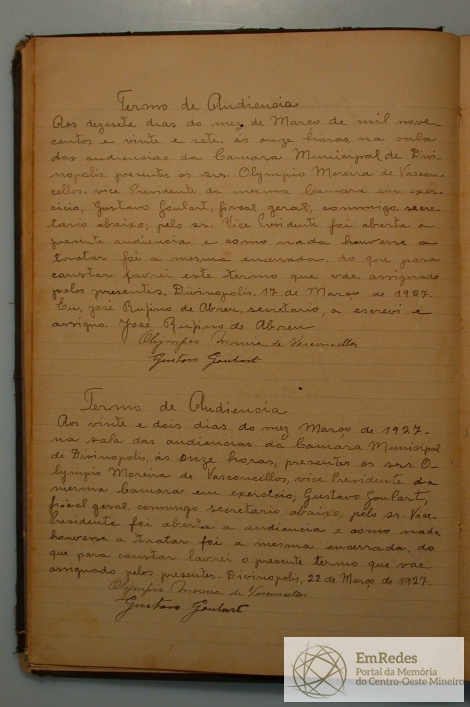 Termo de Audiencia
Aos dezesete dias do mez de Março de mil nove-
centos e vinte e sete, ás onze horas, na sala
das audiencias da Camara Municipal de Divi-
nopolis, presentes os srs. Olympio Moreira de Vascon-
cellos, vice Presidente da mesma Camara em exer-
cicio, Gustavo Goulart, fiscal geral, commigo secre-
tario abaixo, pelo sr. Vice Presidente foi aberta a
presente audiencia e como nada houvesse a
tratar foi a mesma encerrada, do que para
constar lavrei este termo que vae assignado
pelos presentes. Divinopolis, 17 de Março de 1927.
Eu, José Rufino de Abreu, secretario, a escrevi e
assigno. José Rufino de Abreu
Olympio Moreira de Vasconcellos
Gustavo Goulart
Termo de Audiencia
Aos vinte e dois dias do mez Março de 1927.
na sala das audiencias da Camara Municipal
de Divinopolis, ás onze horas, presentes os srs. O-
lympio Moreira de Vasconcellos, vice Presidente da
mesma Camara em exercicio, Gustavo Goulart,
fiscal geral, commigo secretario abaixo, pelo sr. Vice-
Presidente foi aberta a audiencia e como nada
houvesse a tratar foi a mesma encerrada, do
que para constar lavrei o presente termo que vae
assignado pelos presentes. Divinopolis, 22 de Março de 1927.
Olympio Moreira de Vasconcellos
Gustavo Goulart
EmRedes
Portal da Memória
do Centro-Oeste Mineiro